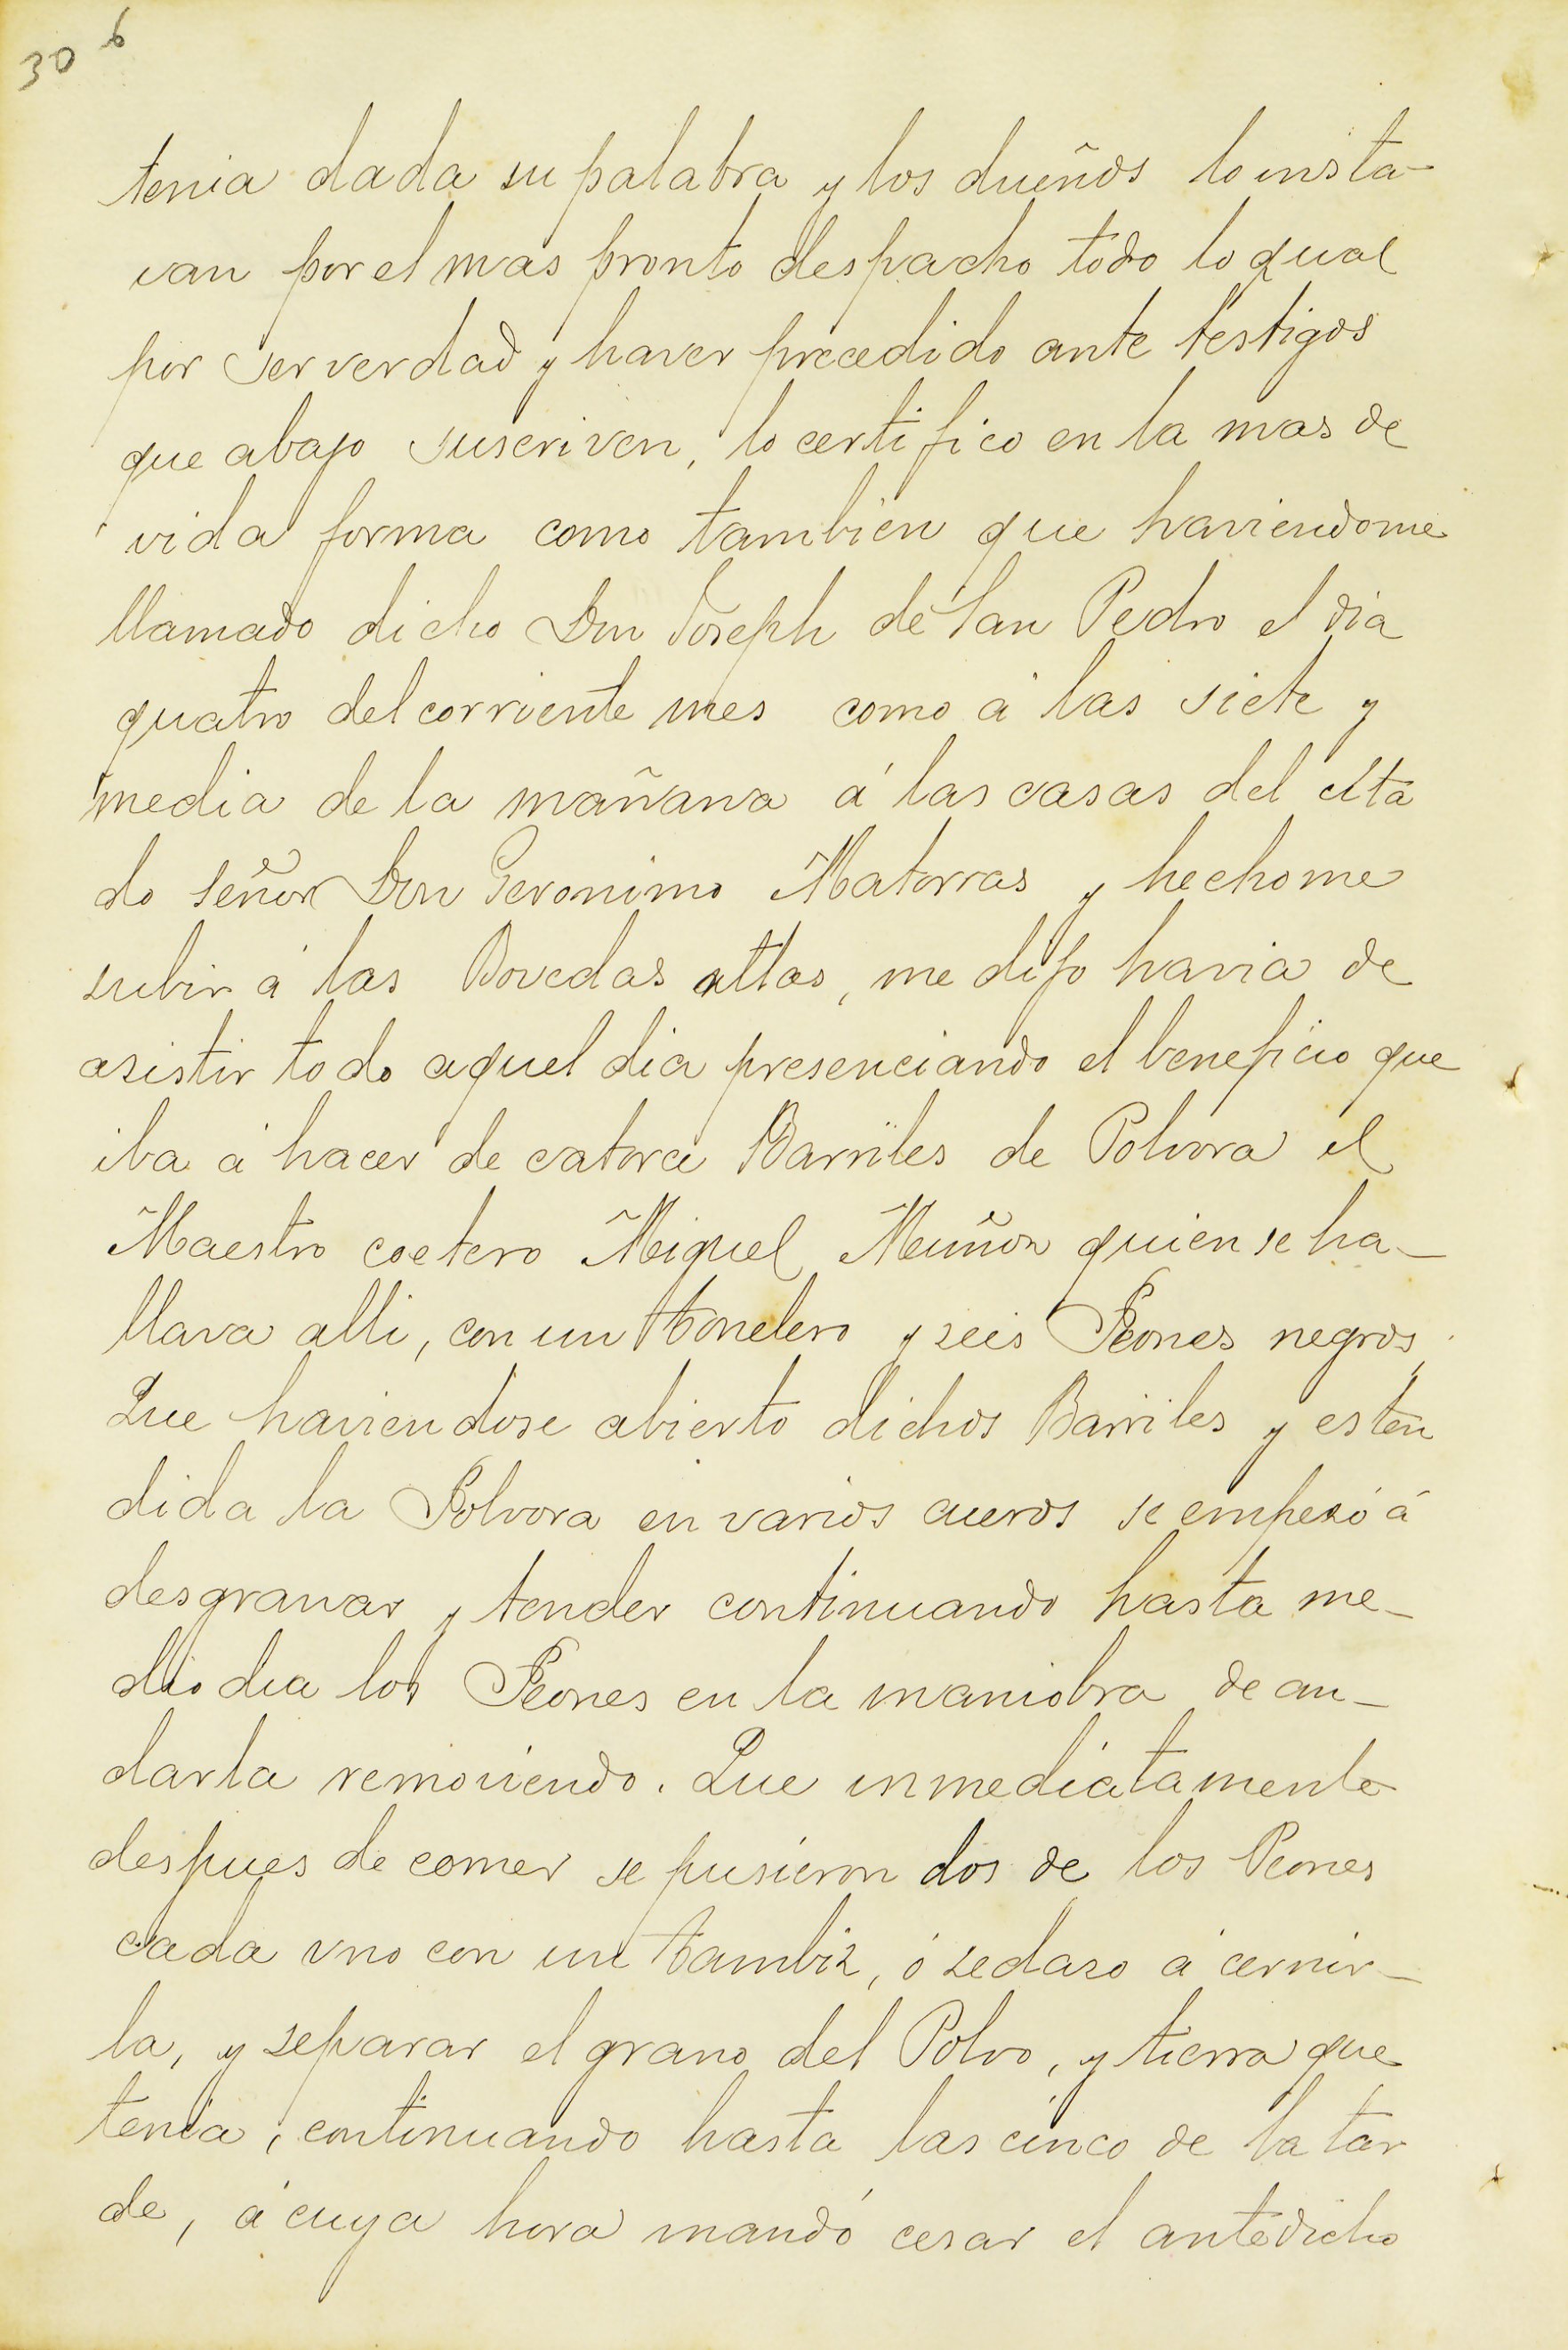 30 6
tenia dada su palabra y los dueños lo insta-
van por el mas pronto despacho todo lo qual
por ser verdad y haver precedido ante testigos
que abajo suscriven, lo certifico en la mas de
vida forma como tambien que haviendome
llamado dicho Don Joseph de San Pedro el dia
quatro del corriente mes como á las siete y
media de la mañana á las casas del cita
do señor Don Geronimo Matorras y hechome
subir á las Bovedas altas, me dijo havia de
asistir todo aquel dia presenciando el beneficio que
iba á hacer de catorce Barriles de Polvora el
Maestro coetero Miguel Muñoz quien se ha-
llava alli, con un tonelero y seis Peones negros,
Que haviendose abierto dichos Barriles y esten
dida la Polvora en varios cueros se empezó á
desgranar y tender continuando hasta me-
dio dia los Peones en la maniobra de an-
darla removiendo. Que inmediatamente
despues de comer se pusieron dos de los Peones
cada vno con un tambiz, ó sedazo á cernir-
la, y separar el grano del Polvo, y tierra que
tenia, continuando hasta las cinco de la tar
de, á cuya hora mandó cesar el antedicho